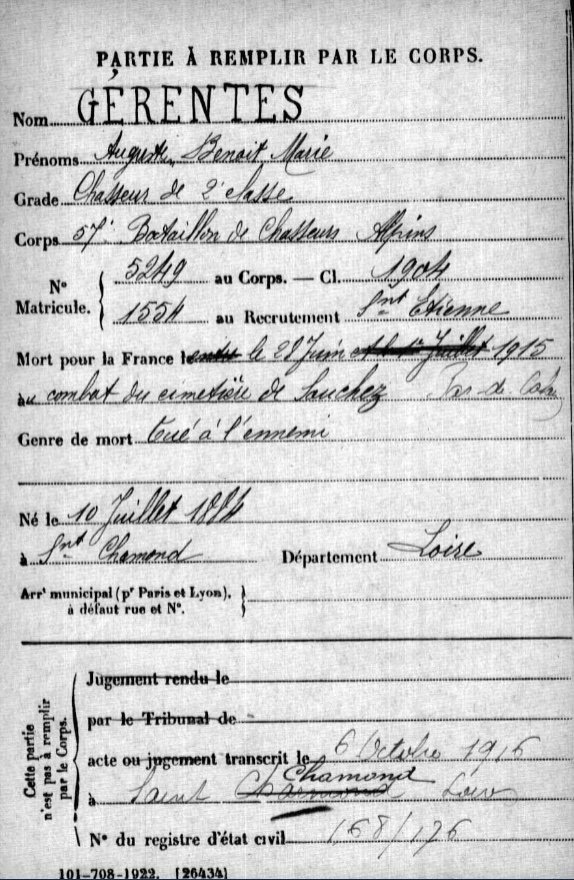 PARTIE À REMPLIR PAR LE CORPS.
Nom GÉRENTES
Prénoms Auguste, Benoit, Marie
Grade Chasseur de 2e classe
Corps 57e Bataillon de Chasseurs Alpins
No Matricule. 5249 au Corps. — Cl. 1904
1554 au Recrutement Snt Etienne
Mort pour la France le entre le 28 Juin et le 1er Juillet 1915
au combat du cimetière de Souchez Pas de Cal
Genre de mort Tué à l'ennemi
Né le 10 Juillet 1884
à Snt Chamond Département Loire
Arrt municipal (pr Paris et Lyon),
à défaut rue et No.
Cette partie
n'est pas à remplir
par le Corps.
Jugement rendu le
par le Tribunal de
acte ou jugement transcrit le 6 Octobre 1916
Chamond
à Saint Loire
No du registre d'état civil 168/176
101-708-1922. [26434]